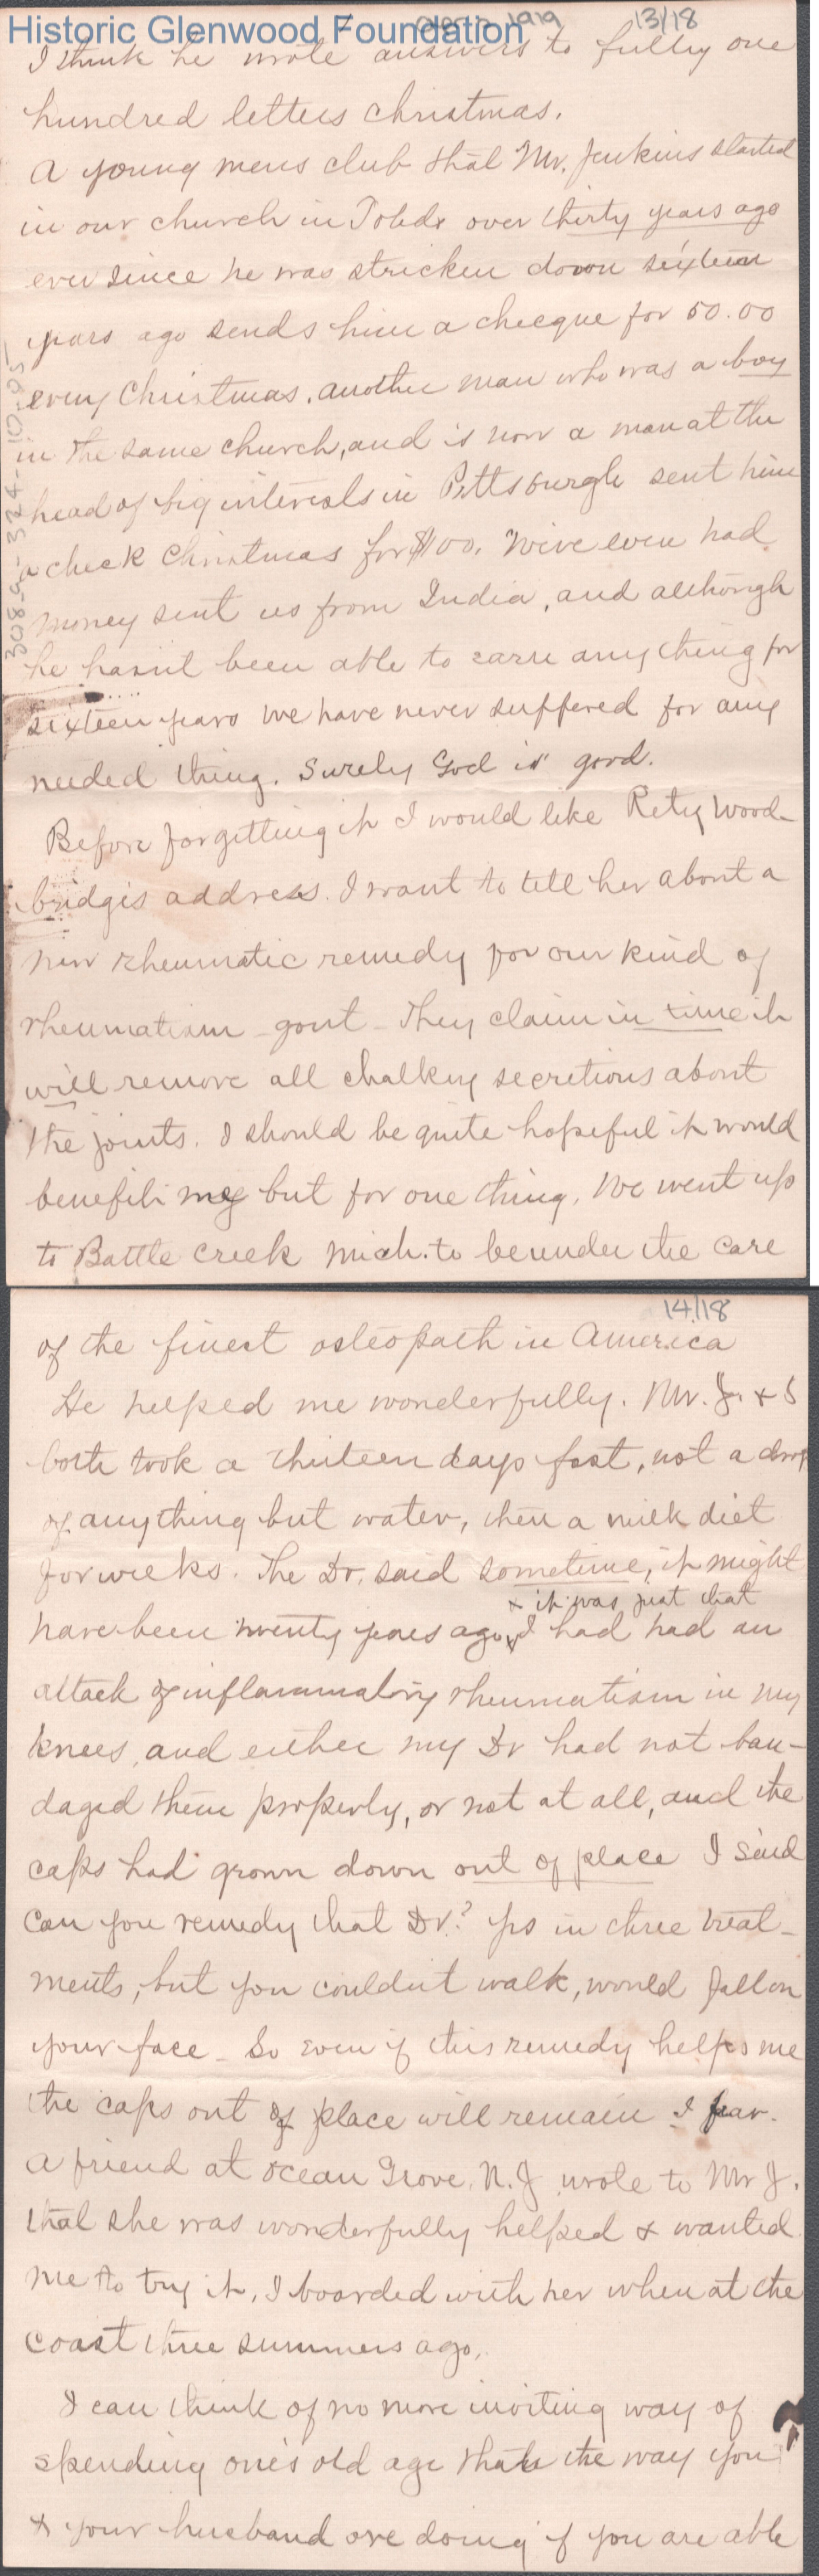 Historic Glenwood Foundation
1919
13/18
I think he wrote answers to fully one
hundred letters christmas.
A young mens club that Mr. Jenkins started
in our church in Toledo over thirty years ago
ever since he was stricken down sixteen
years ago sends him a checque for 50.00
every Christmas. another man who was a boy
in the same church, and is now a man at the
head of big interests in Pittsburgh sent him
a check Christmas for $100. We've even had
money sent us from India, and although
he hasn't been able to earn anything for
sixteen years we have never suffered for any
needed thing. Surely God is good.
Before forgetting it I would like Retty Wood-
bridges address. I want to tell her about a
new rheumatic remedy for our kind of
rheumatism - gout - They claim in time it
will remove all chalky secretions about
the joints. I should be quite hopeful it would
benefit me but for one thing. We went up
to Battle Creek Mich. to be under the care
308-9-324-10-95
14/18
of the finest osteopath in America
He helped me wonderfully. Mr. J. + I
both took a thirteen days fast, not a drop
of anything but water, then a milk diet
for weeks. The Dr. said sometime, it might
+ it was just that
have been twenty years ago, I had had an
attack of inflammatory rheumatism in my
knees, and either my Dr had not ban-
daged them properly, or not at all, and the
caps had grown down out of place I said
Can you remedy that Dr.? yes in three treat-
ments, but you couldn't walk, would fall on
your face - So even if this remedy helps me
the caps out of place will remain I fear.
A friend at Ocean Grove, N.J wrote to Mr J.
that she was wonderfully helped + wanted
me to try it. I boarded with her when at the
coast three summers ago.
I can think of no more inviting way of
spending one's old age than the way you
+ your husband are doing if you are able